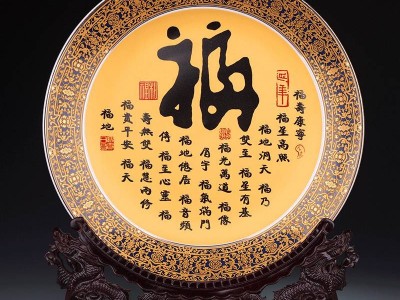 福
福壽康寧
福星高照
福地洞天 福乃
雙至 福星有基
福光萬道 福像
眉宇 福氣滿門
福地 居 福音頻
傳 福至心靈 福
壽無雙 福慧
福貴平安 福天
福地